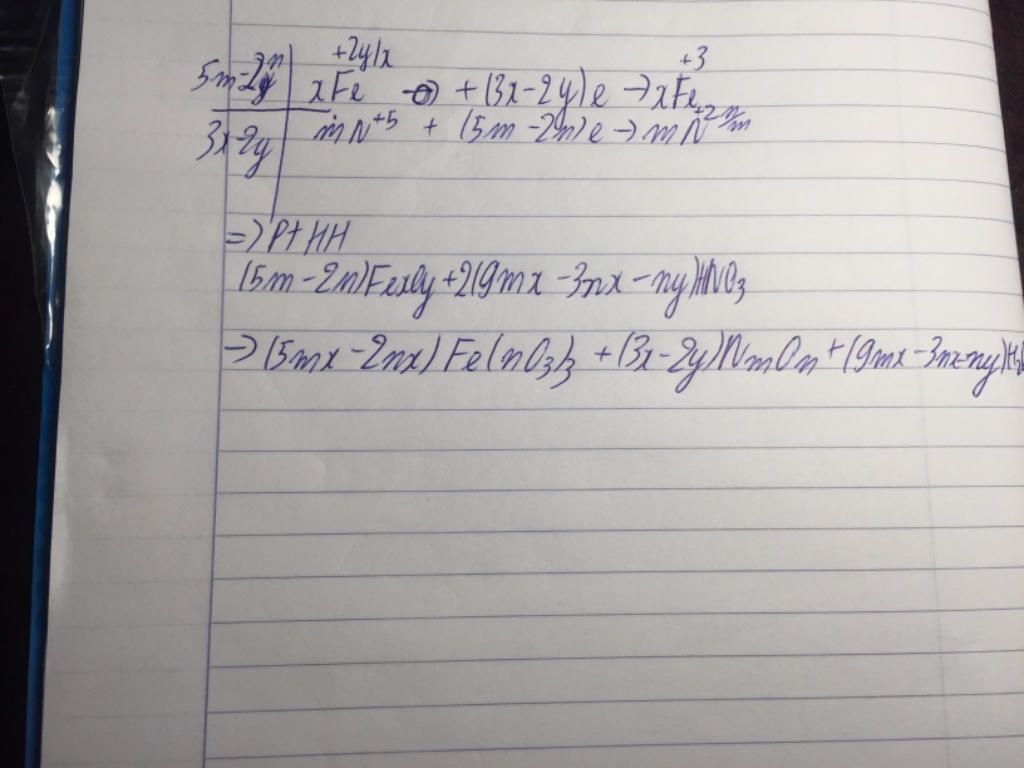 +2y/x +3
5m-2n | xFe → + (3x-2y)e → xFe
3x-2y | mN+5 + (5m-2n)e → mN+2n/m
=> PTHH
(5m-2n)FexOy + 2(9mx-3nx-ny)HNO3
→ (5mx-2nx) Fe(nO3)3 + (3x-2y)NmOn + (9mx-3nx-ny)H2O